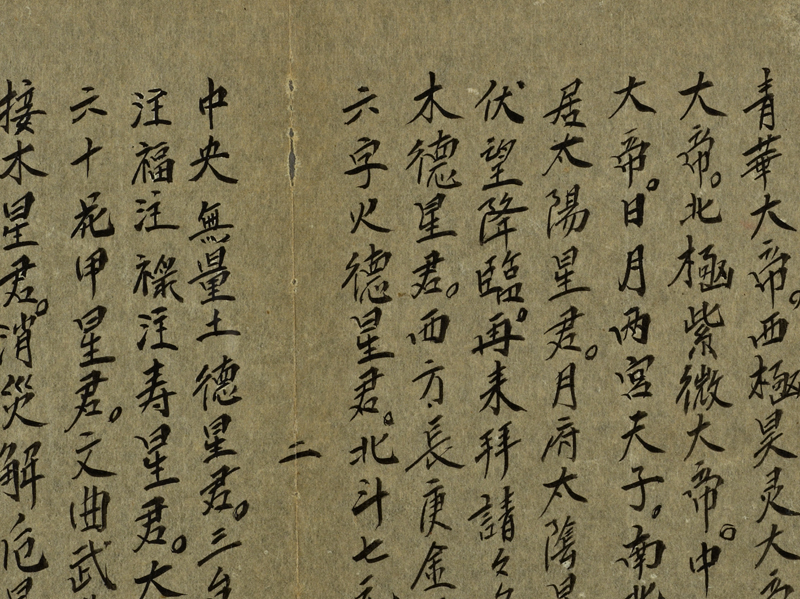 青華大帝。西極昊灵大
大帝。北極紫微大帝。中
大帝。日月两宮天子。南
居太陽星君。月府太陰
伏望降臨。再来拜請々
木德星君。西方長庚金
六字火德星君。北斗七
二
中央無量土德星君。三
注福注禄注寿星君。大
六十花甲星君。文曲武
接木星君。消災解厄